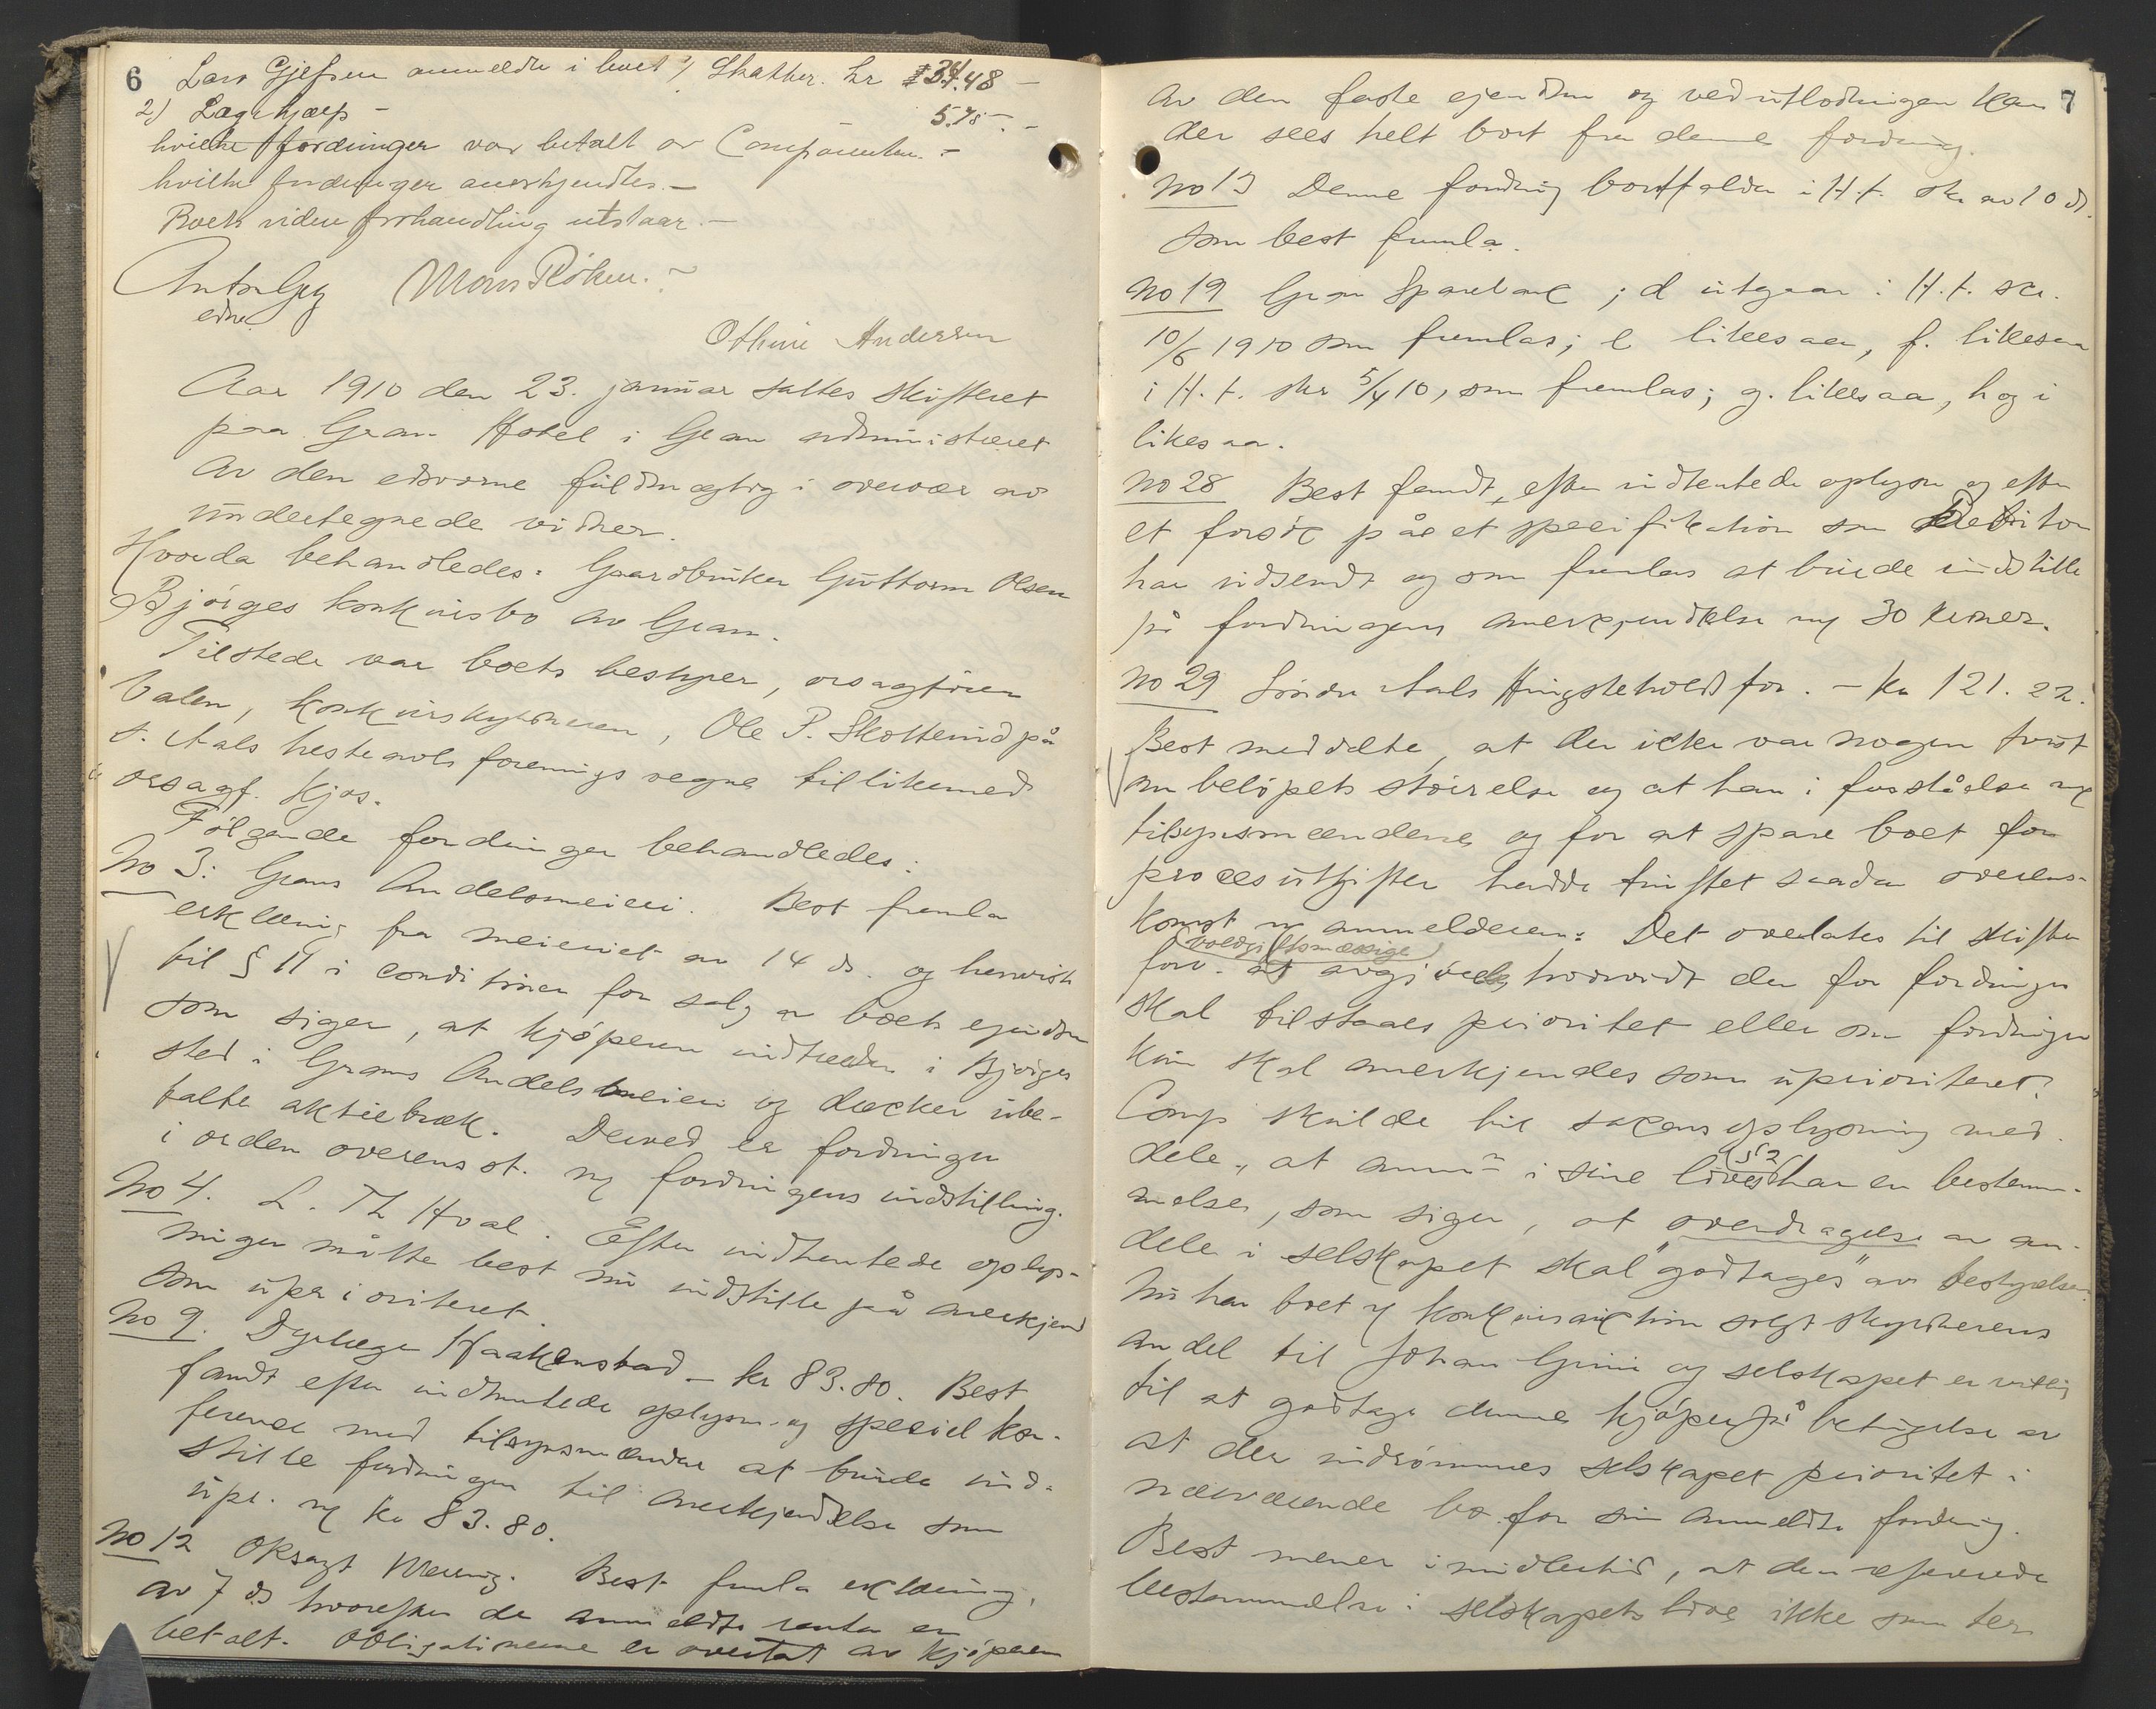 6 Lars Gjefsen anmeldte i boet 1) Skatter. kr 34.48 –
2) Lægehjælp – 5.75 –
hvilke fordringer var betalt av Comparenten. –
hvilke fordringer anerkjendtes. –
Boets videre forhandling utstaar. –
Mons Røken.
edsv.
Othine Andersen
Aar 1910 den 23. januar sattes skifteret
paa Gran Hotel i Gran administreret
av den edsvorne fuldmægtig i overvær av
undertegnede vidner.
Hvorda behandledes: Gaardbruker Guttorm Olsen
Bjørges konkursbo av Gran.
Tilstede var boets bestyrer, orsagfører
Valen, konkursskyldneren, Ole P. Skotterud på
S. Aals hesteavls forenings vegne tillikemed
orsagf. Kjos.
Følgende fordringer behandledes:
No 3: Grans Andelsmeieri. Best fremla
erklæring fra meieriet av 14 ds. og henviste
til § 11 i conditioner for salg av boets eiendom
som siger, at kjøperen indtræder i Bjørges
sted i Grans Andelsmeieri og dækker ube-
talte aktiebræk. Derved er fordringen
i orden overensst. m fordringens indstilling.
No 4. L. Th Hval. Efter indhentede oplys-
ninger måtte best nu indstille på anerkjend
som uprioriteret.
No 9. Dyrlæge Haakenstad – kr 83.80. Best
fandt efter indhentede oplysn. og speciel kon-
ference med tilsynsmændene at burde ind-
stille fordringen til anerkjendelse som
upr. m kr 83.80.
No 12 Oksagf Wessing. Best fremla erklæring
av 7 ds hvorefter de anmeldte renter er
betalt. Obligationerne er overtat av kjøperen
av den faste ejendom og ved utlodningen kan 7
der sees helt bort fra denne fordring.
No 13 Denne fordring bortfalder i H.t. skr av 10 ds.
som best fremla.
No 19 Gran Sparebank; d utgaar i H.t. skr.
10/6 1910 som fremlas; e likesaa, f. likesaa
i H.t. skr 5/4 10, som fremlas; g. likesaa, h og i
likesaa.
No 28 Best fandt, efter indhentede oplysn og efter
et forsøk på et specifikation som Debitor
har indsendt og som fremlas at burde indstille
på fordringens anerkjendelse m 30 kroner.
No 29 Søndre Aals Hingsteholdsfor. – Kr 121.22.
Best meddelte, at der ikke var nogen tvist
om beløpets størrelse og at han i forståelse m
tilsynsmændene og for at spare boet for
procesutgifter hadde truffet saadan overens-
komst m anmelderen: Det overlates til skifte
(voldgiftsmæssige)
forv. at avgjøres, hvorvidt der for fordringen
skal tilstaaes prioritet eller om fordringen
kun skal anerkjendes som uprioriteret.
Comp skulde til sakens oplysning med-
dele, at anm. i sine love § 2 har en bestem-
melse, som siger, at overdragelse av an-
dele i selskapet skal "godtages" av bestyrelsen.
Nu har boet v konkursauktion solgt skyldnerens
andel til Johan Grini og selskapet er villig
til at godtage denne kjøper på betingelse av
at der indrømmes selskapet prioritet i
nærværende bo for sin anmeldte fordring.
Best mener imidlertid, at den refererede
bestemmelse i selskapets love ikke som ter